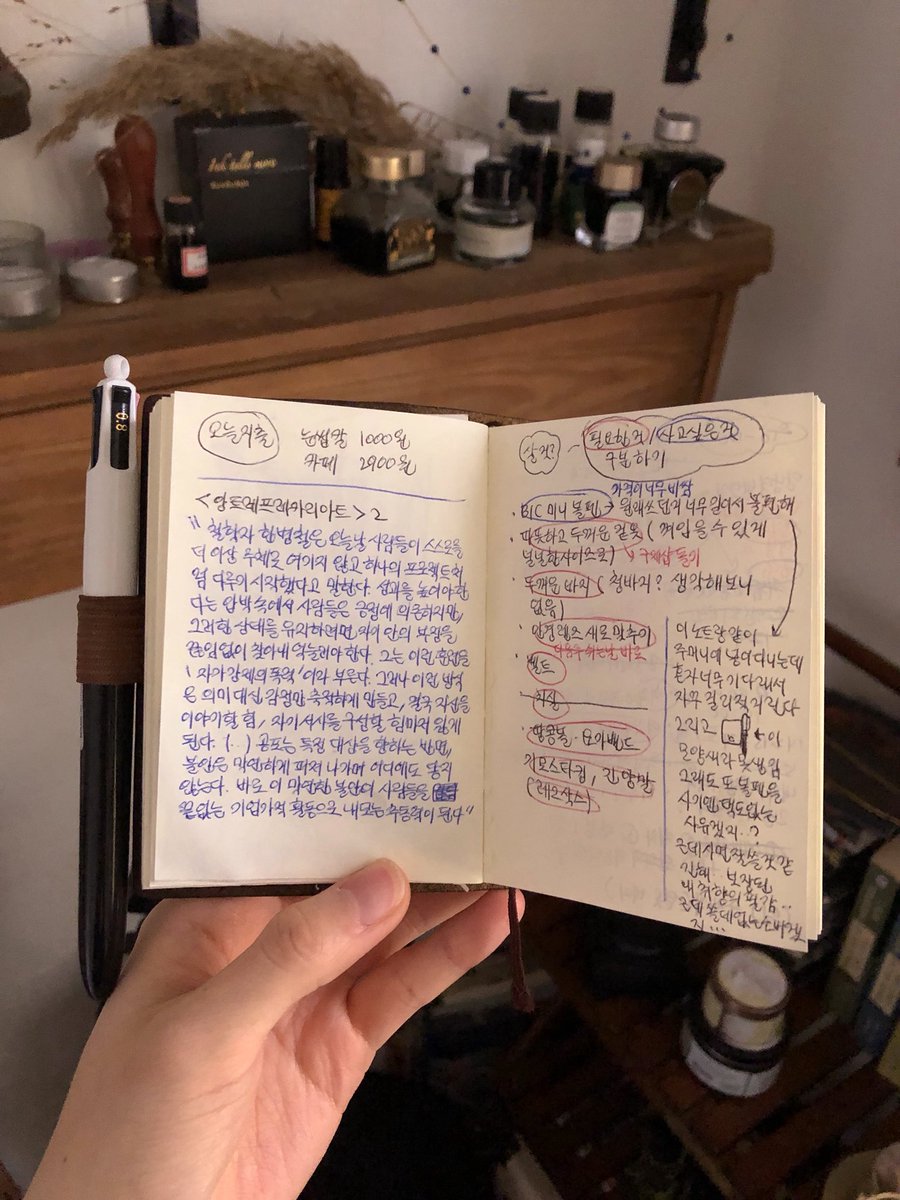 0.8
오늘지출
눈썹칼 1000원
카페 2900원
<앙트레프레카리아트> 2
" 철학자 한병철은 오늘날 사람들이 스스로를
더 이상 주체로 여기지 않고 하나의 프로젝트처
럼 다루기 시작했다고 말한다. 성과를 높여야 한
다는 압박 속에서 사람들은 긍정에 의존하지만,
그러한 상태를 유지하려면 자기 안의 부정을
끊임없이 찾아내 억눌러야 한다. 그는 이런 훈련을
'자아 강제의 폭력'이라 부른다. 그러나 이런 방식
은 의미 대신 감정만 축적하게 만들고, 결국 자신을
이야기할 힘, 자기 서사를 구성할 힘마저 잃게
된다. (...) 공포는 특정 대상을 향하는 반면,
불안은 막연하게 퍼져 나가며 어디에도 닿지
않는다. 바로 이 막연한 불안이 사람들을
끝없는 기업가적 활동으로 내모는 추동력이 된다"
살것?
필요한것 / 사고싶은것
구분하기
가격이 너무 비쌈
· BIC 미니 볼펜 → 원래 쓰던게 너무 길어서 불편해
· 따뜻하고 두꺼운 겉옷 ( 껴입을 수 있게
널널한 사이즈로) 구제샵 돌기
· 두꺼운 바지 ( 청바지? 생각해보니
없음)
· 안경렌즈 새로 맞추기
· 벨트
지모스타킹, 긴양말
(레그삭스)
이 노트랑 같이
주머니에 넣어다니는데
혼자 너무 기다래서
자꾸 걸리적거린다
그리고 ← 이
모양새라 못생김
그래도 또 볼펜을
사기엔 택도없는
사유겠지..?
근데 사면 잘 쓸 것 같
긴해. 보장된
내 취향의 필감..
근데 쓸데없는 소비겠
지...